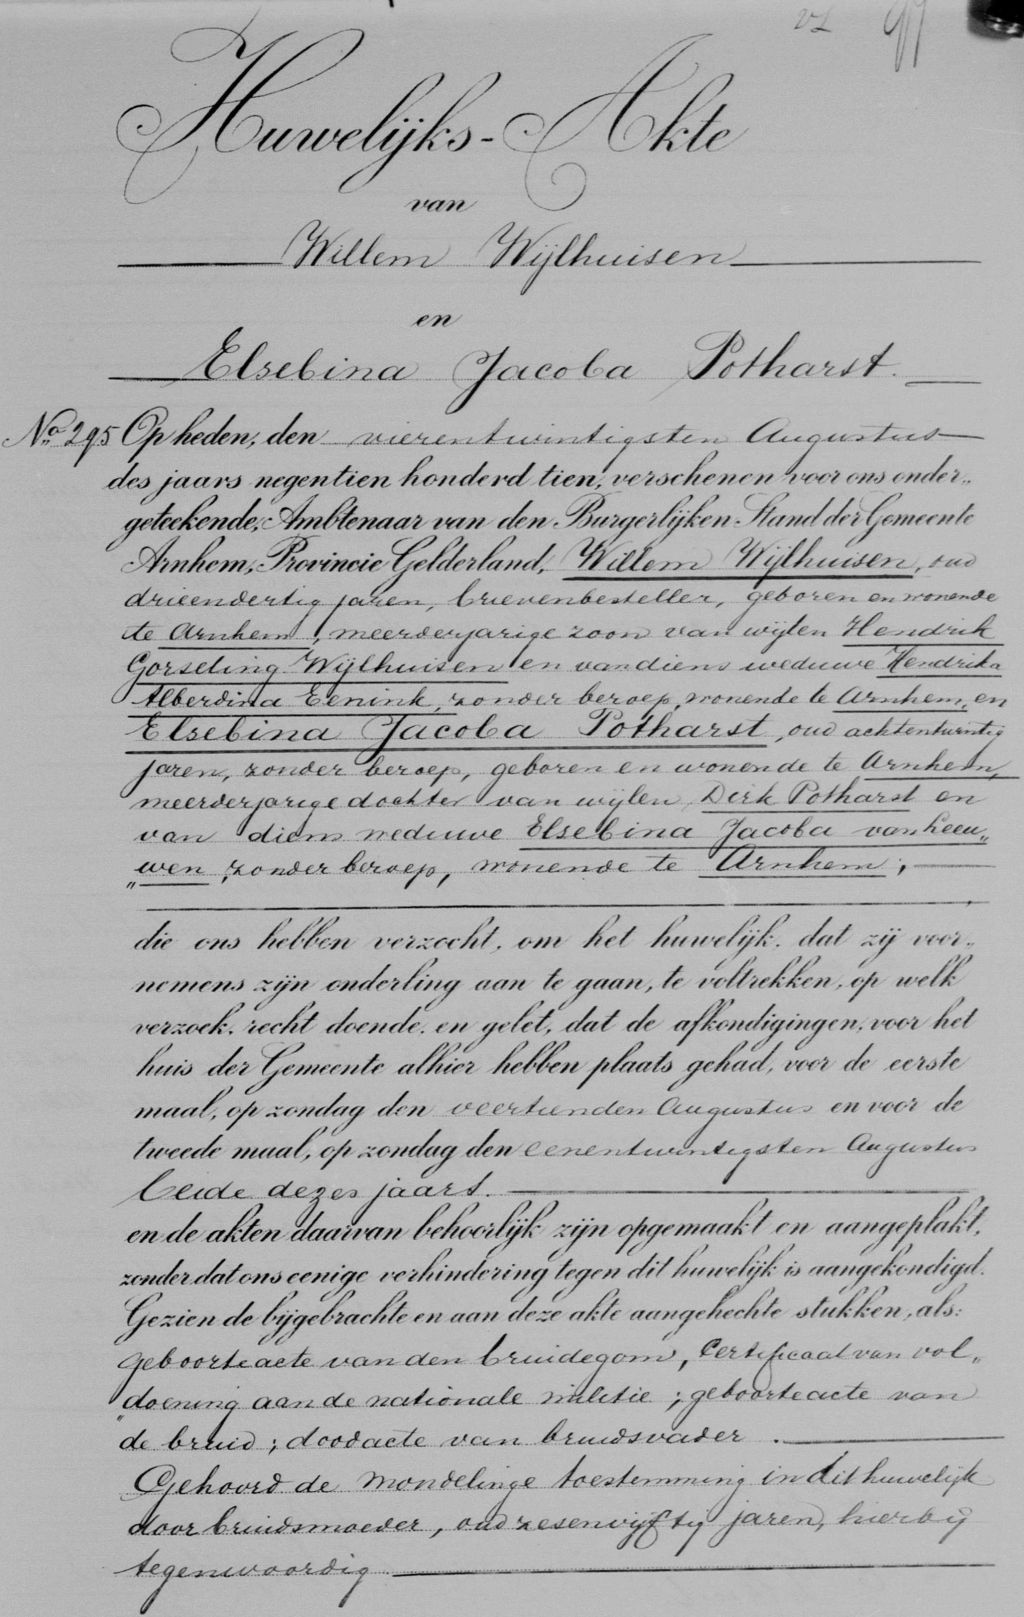 Huwelijks-Akte
van
Willem Wijlhuisen
en
Elsebina Jacoba Potharst.
No. 295 Op heden, den vierentwintigsten Augustus
des jaars negentien honderd tien, verschenen voor ons onder„
geteekende, Ambtenaar van den Burgerlijken Stand der Gemeente
Arnhem, Provincie Gelderland, Willem Wijlhuisen, oud
drieendertig jaren, brievenbesteller, geboren en wonende
te Arnhem, meerderjarige zoon van wijlen Hendrik
Gorseling Wijlhuisen en van diens weduwe Hendrika
Alberdina Eenink, zonder beroep, wonende te Arnhem, en
Elsebina Jacoba Potharst, oud achtentwintig
jaren, zonder beroep, geboren en wonende te Arnhem,
meerderjarige dochter van wijlen Dirk Potharst en
van diens weduwe Elsebina Jacoba van Leeu„
„wen, zonder beroep, wonende te Arnhem;
die ons hebben verzocht, om het huwelijk, dat zij voor„
nemens zijn onderling aan te gaan, te voltrekken, op welk
verzoek, recht doende, en gelet, dat de afkondigingen, voor het
huis der Gemeente alhier hebben plaats gehad, voor de eerste
maal, op zondag den veertienden Augustus en voor de
tweede maal, op zondag den eenentwintigsten Augustus
beide dezes jaars.
en de akten daarvan behoorlijk zijn opgemaakt en aangeplakt,
zonder dat ons eenige verhindering tegen dit huwelijk is aangekondigd.
Gezien de bijgebrachte en aan deze akte aangehechte stukken, als:
geboorteacte van den bruidegom, Certificaat van vol„
„doening aan de nationale militie; geboorteacte van
de bruid; doodacte van bruidsvader.
Gehoord de mondelinge toestemming in dit huwelijk
door bruidsmoeder, oud zesenvijftig jaren, hierbij
tegenwoordig